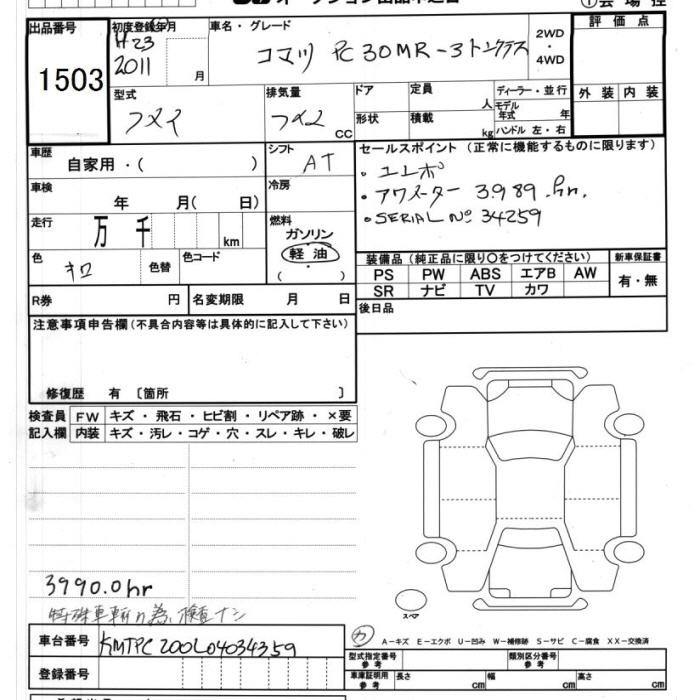 オークション出品申込書
出品番号
1503
初度登録年月
H23
2011 月
車名・グレード
コマツ PC30MR-3 トンクラス
2WD
・
4WD
評価点
外装 内装
型式
フメイ
排気量
フメイ CC
ドア
形状
定員 人
積載 kg
ディーラー・並行
モデル年式 年
ハンドル 左・右
車歴
自家用・( )
シフト
AT
車検
年 月( 日)
冷房
走行
万 千 km
燃料
ガソリン
軽油
( ・ )
色
キロ
色替
色コード
セールスポイント (正常に機能するものに限ります)
・ユンボ
・アワメーター 3989.hr.
・SERIAL No 34259
装備品 (純正品に限り○をつけてください)
新車保証書
PS PW ABS エアB AW
SR ナビ TV カワ
有・無
R券 円
名変期限 月 日
後日品
注意事項申告欄(不具合内容等は具体的に記入して下さい)
修復歴 有 〔箇所 〕
検査員
記入欄
FW キズ・飛石・ヒビ割・リペア跡・×要
内装 キズ・汚レ・コゲ・穴・スレ・キレ・破レ
3990.0hr
特殊車輌の為、検査ナシ
スペア
車台番号
KMTPC200L04034359
登録番号
カ
A-キズ E-エクボ U-凹み W-補修跡 S-サビ C-腐食 XX-交換済
型式指定番号
参考
類別区分番号
参考
車庫証明用
参考
長さ cm
幅 cm
高さ cm